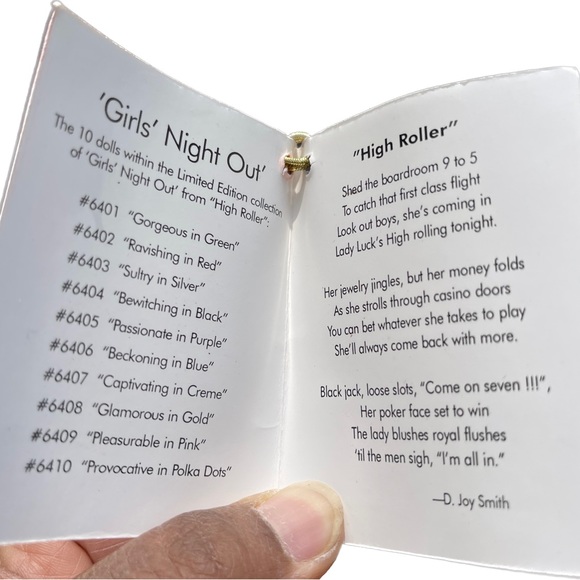 'Girls' Night Out'
The 10 dolls within the Limited Edition collection
of 'Girls' Night Out' from "High Roller":
#6401 "Gorgeous in Green"
#6402 "Ravishing in Red"
#6403 "Sultry in Silver"
#6404 "Bewitching in Black"
#6405 "Passionate in Purple"
#6406 "Beckoning in Blue"
#6407 "Captivating in Creme"
#6408 "Glamorous in Gold"
#6409 "Pleasurable in Pink"
#6410 "Provocative in Polka Dots"
"High Roller"
Shed the boardroom 9 to 5
To catch that first class flight
Look out boys, she's coming in
Lady Luck's High rolling tonight.
Her jewelry jingles, but her money folds
As she strolls through casino doors
You can bet whatever she takes to play
She'll always come back with more.
Black jack, loose slots, "Come on seven !!!",
Her poker face set to win
The lady blushes royal flushes
'til the men sigh, "I'm all in."
—D. Joy Smith